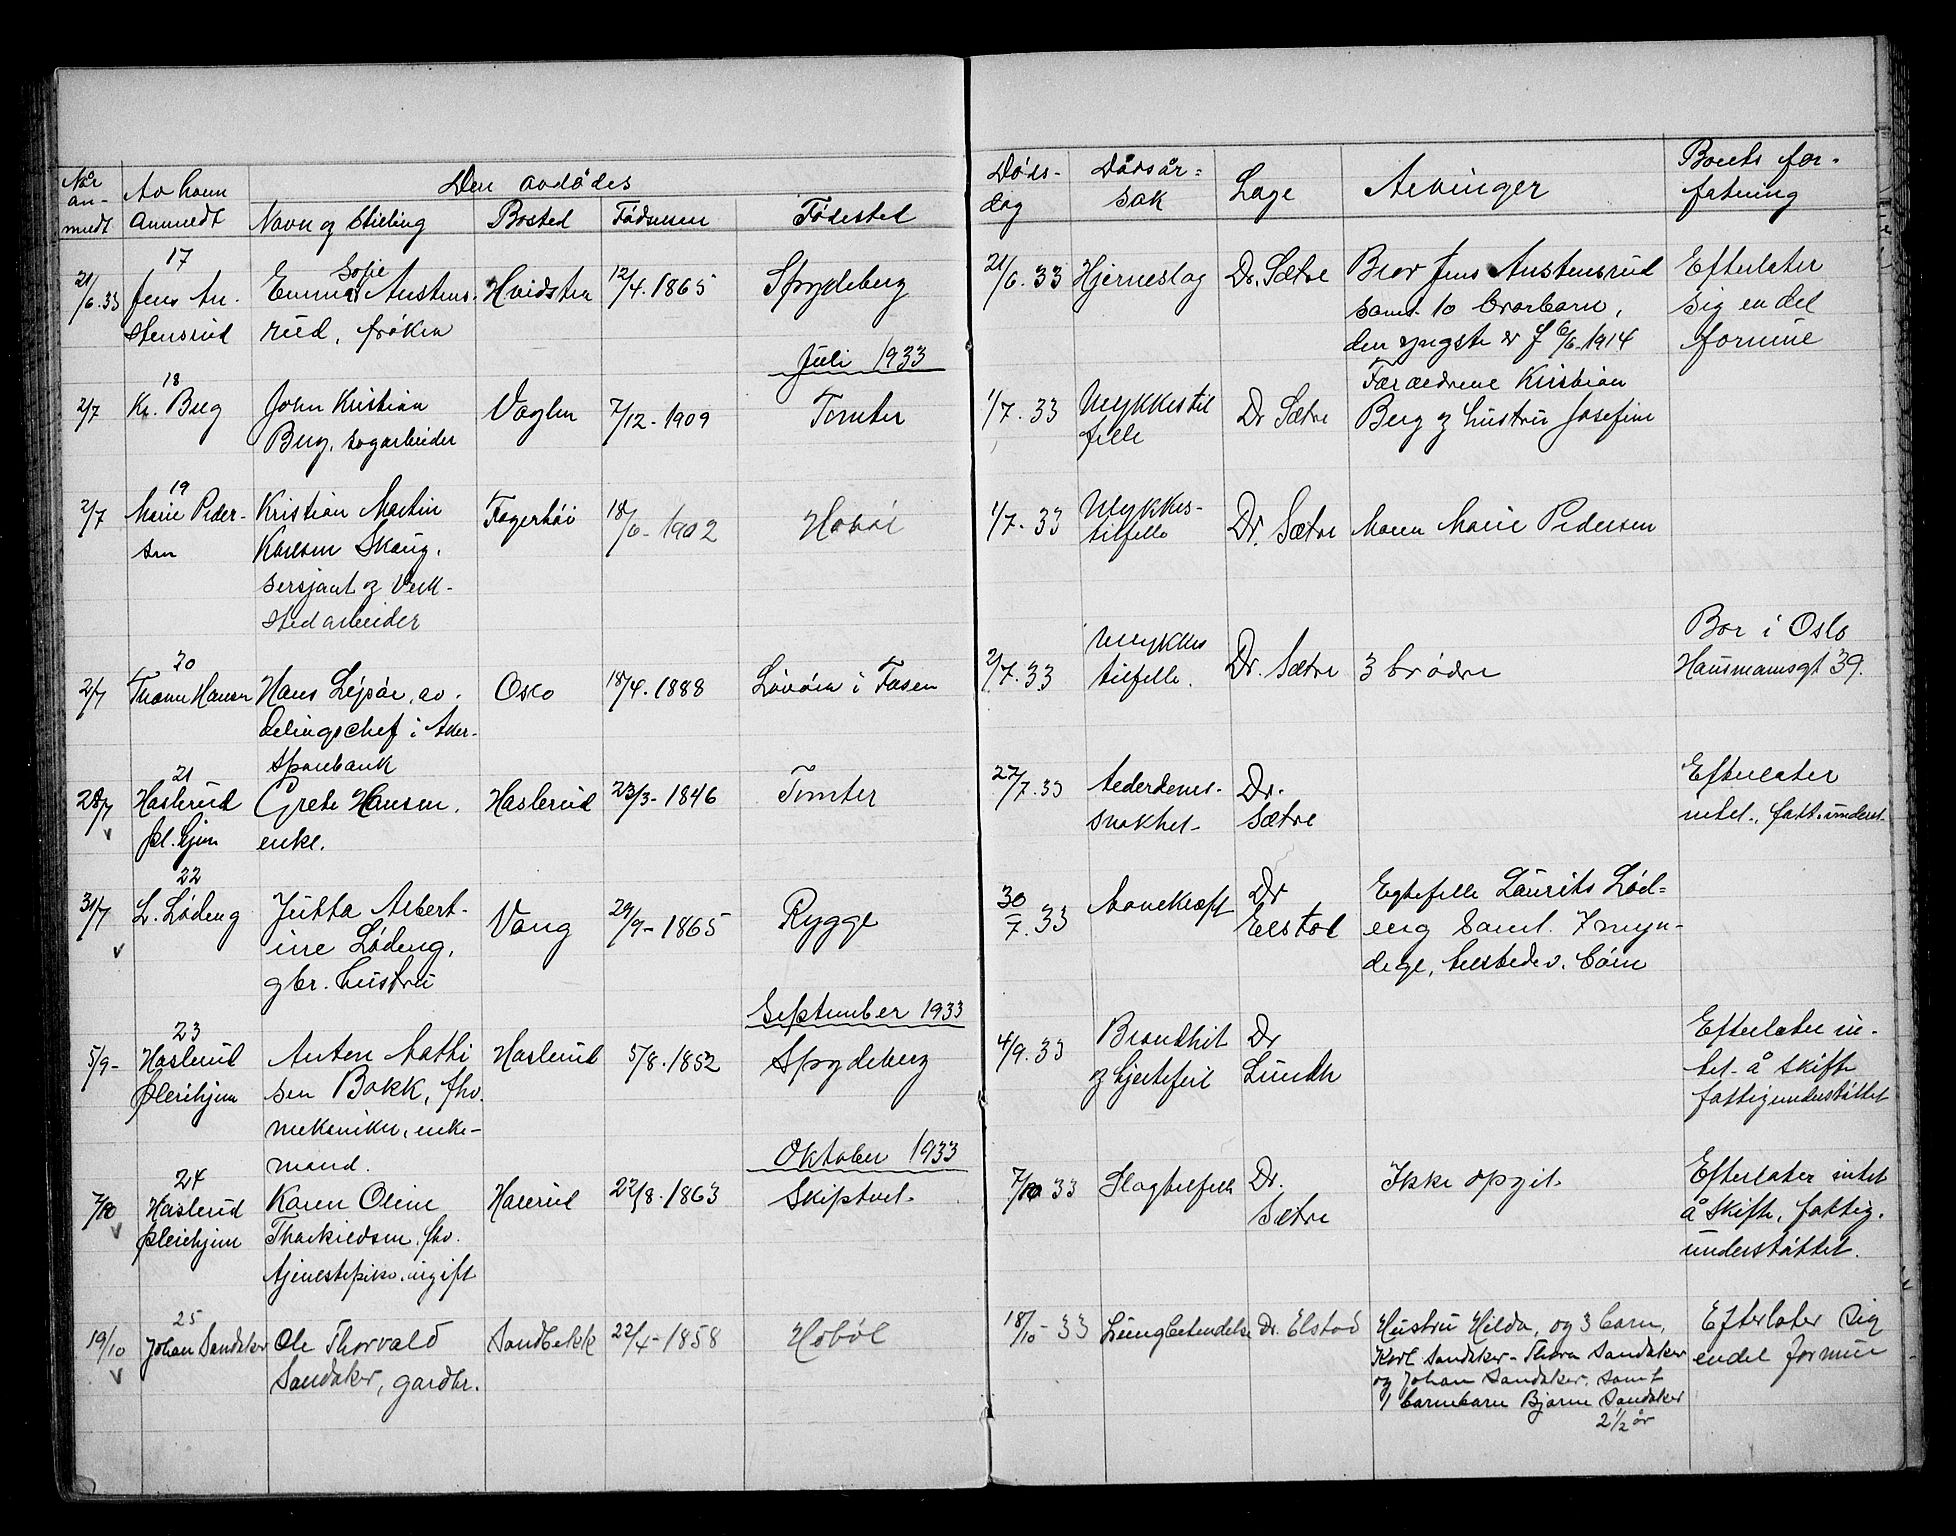 Når an-meldt
Av hvem anmeldt
Den avdødes
Navn og Stilling
Bosted
Fødselsen
Fødested
Døds-dag
Dødsår=sak
Læge
Arvinger
Boets for-fatning
17
21/6.33 Jens Au- Emma Sofie Austens- Hvidsten 12/4.1865 Spydeberg 21/6.33 Hjerneslag Dr. Sætre Bror Jens Austensrud Efterlater
stensrud rud, frøken samt 10 brorbarn, sig en del
den yngste er f 6/6-1914 formue
Juli 1933
18
2/7 Kr. Berg John Kristian Vaglen 7/12-1909 Tomter 1/7.33 Ulykkestil Dr Sætre Forældrene Kristian
Berg, sagarbeider felle Berg og hustru Josefine
19
2/7 Marie Peder- Kristian Martin Fagerhøi 18/6-1902 Hobøl 1/7.33 Ulykkes- Dr. Sætre Moren Marie Pedersen
sen Karlsen Skaug, tilfelle
sersjant og Verk-
sted arbeider
20
2/7 Hans Lejsör, av- Oslo 18/4.1888 i Fåsen 2/7.33 Ulykkes Dr. Sætre 3 brødre Bor i Oslo
delingschef i Aker- tilfelle. Hausmannsgt 39.
Sparebank
21
28/7 Haslerud Grete Hansen, Haslerud 23/3-1846 Tomter 27/7.33 Alderdoms- Dr. Efterlater
pl. hjem enke. svakhet- Sætre intet-, fatt. underst-
22
31/7 L. Lødeng Jutta Albert- Vang 29/9-1865 Rygge 30/7.33 Mavekræft Dr Egtefelle Laurits Lød=
ine Lødeng, Elstad eng samt. 7 myn-
gbr. hustru dige, tilstedev. børn
September 1933
23
5/9- Haslerud Anton Mathi Haslerud 5/8.1852 Spydeberg 4/9.33 Brandhit Dr Efterlater in-
pleiehjem sen Bakk, fhv. og hjertefeil Lundh tet- å skifte
mekaniker, enke- fattigunderstøttet
mand.
Oktober 1933
24
7/10 Haslerud Karen Oline Haslerud 22/8.1863 Skiptvet- 7/10 33 Slagtilfelle Dr. Ikke opgit- Efterlater intet
pleiehjem Thorkildsen, fhv. Sætre å skifte, fattig.
tjenestepike, ugift understøttet.
25
19/10 Johan Sandaker Ole Thorvald Sandbekk 22/4-1858 Hobøl 18/10-33 Lungbetendelse Dr. Elstad Hustru Hilda, og 3 barn, Efterlater sig
Sandaker, gardbr. Karl Sandaker- Thora Sandaker endel formue
og Johan Sandaker, samt
1 barnebarn Bjarne Sandaker
2 1/2 år